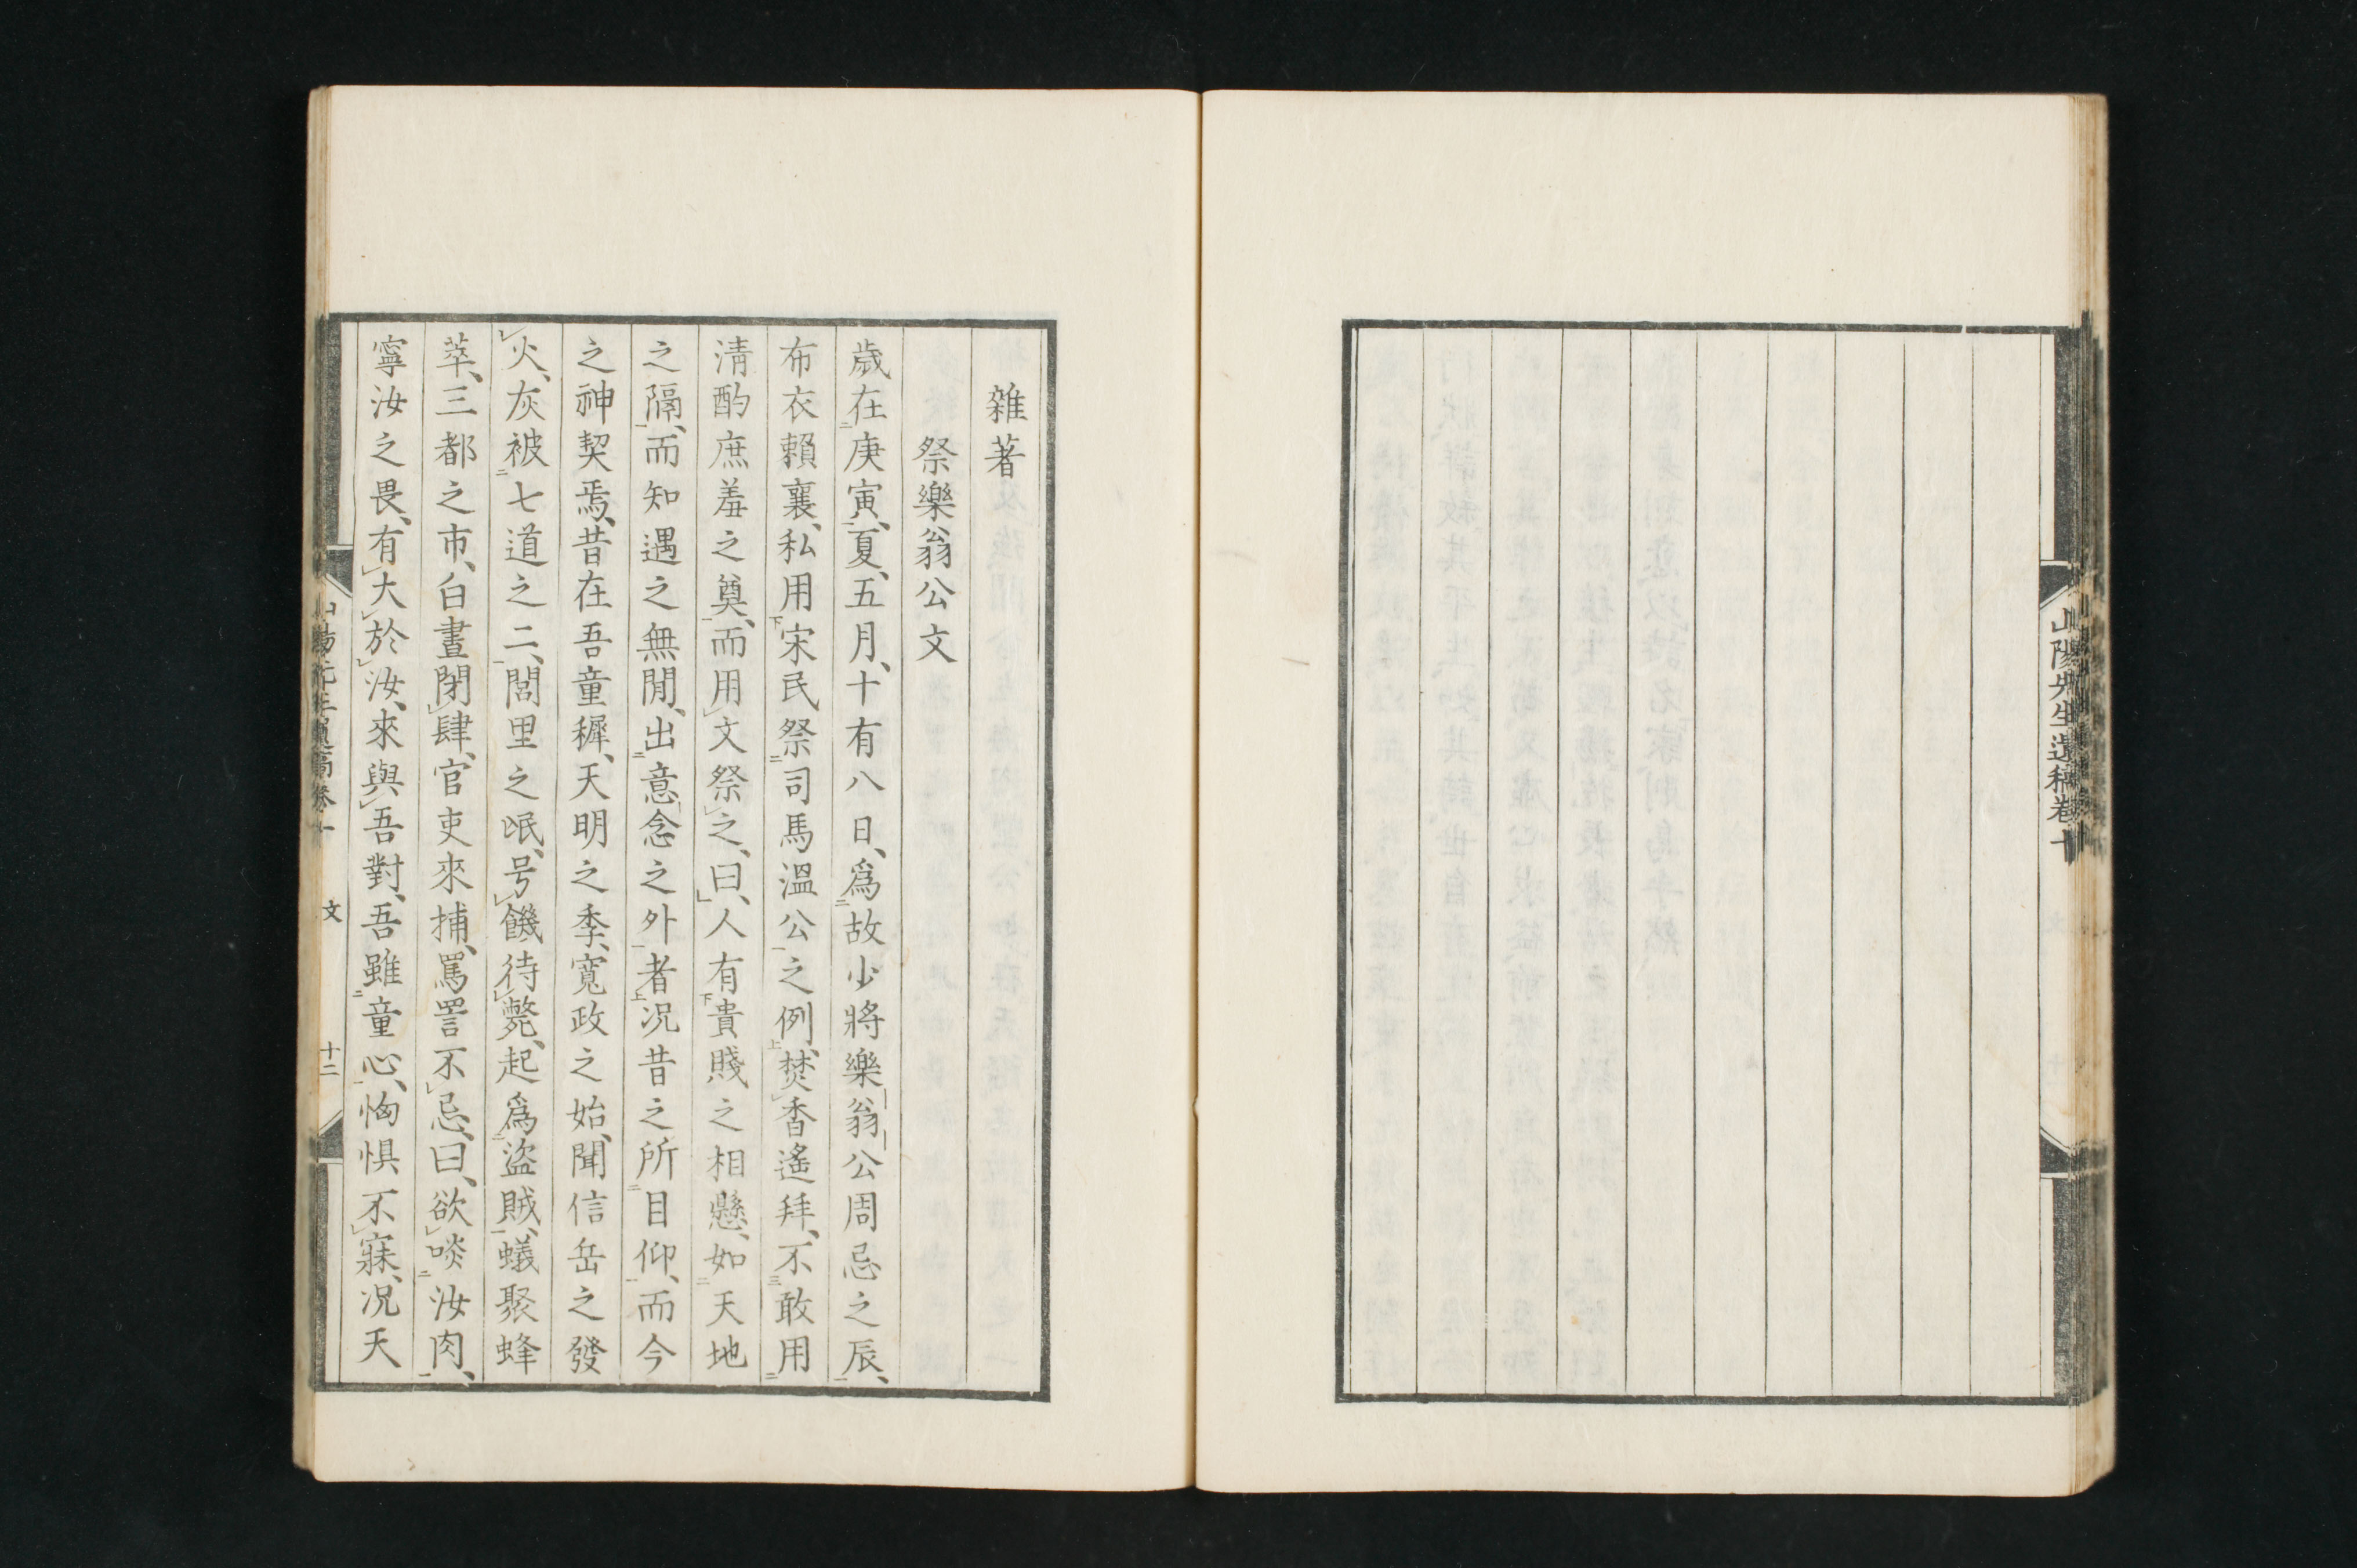 山陽先生遺稿卷十
雜著
祭樂翁公文
歲在庚寅、夏、五月、十有八日、爲故少將樂翁公周忌之辰、
布衣賴襄、私用宋民祭司馬溫公之例、焚香遙拜、不敢用
清酌庶羞之奠、而用文祭之、曰、人有貴賤之相懸、如天地
之隔、而知遇之無間、出意念之外者、况昔之所目仰、而今
之神契焉、昔在吾童穉、天明之季、寬政之始、聞信岳之發
火、灰被七道之二、閭里之氓、号饑待斃、起爲盜賊、蟻聚蜂
萃、三都之市、白晝閉肆、官吏來捕、罵詈不忌、曰、欲啖汝肉、
寧汝之畏、有大於汝、來與吾對、吾雖童心、恟惧不寐、况天
文
十二